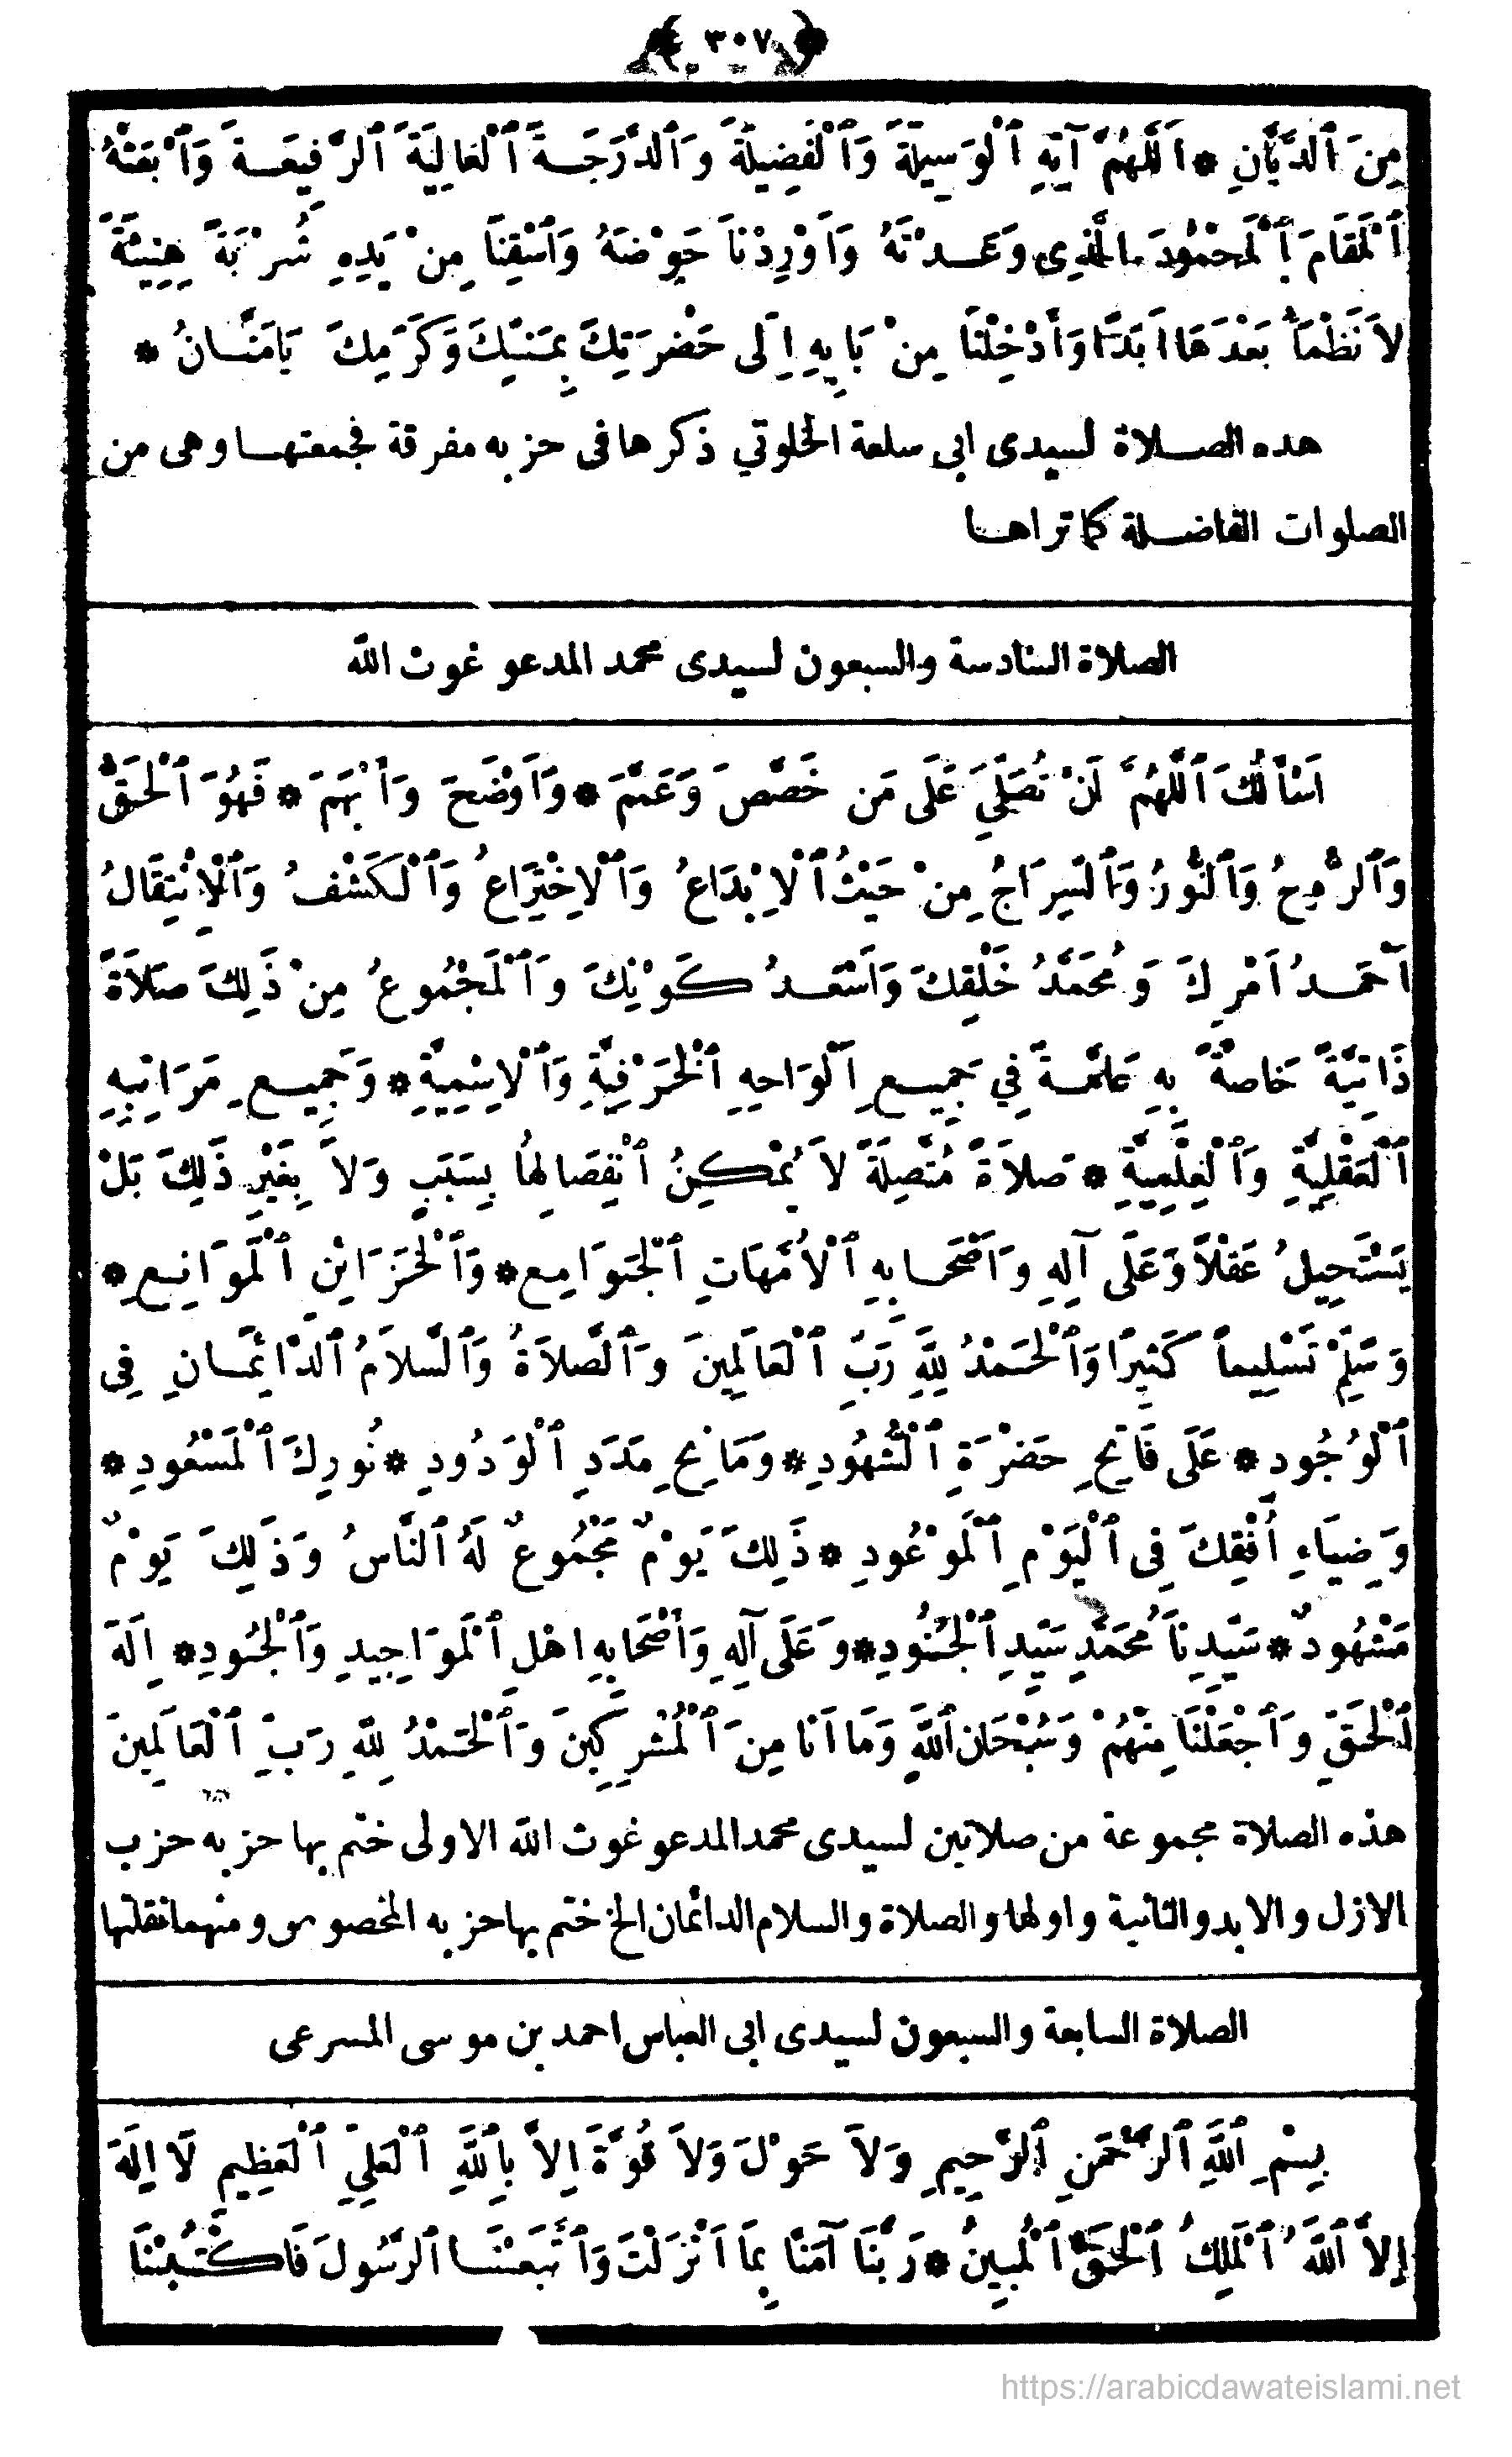 ﴿ ٣٠٧ ﴾
مِنَ ٱلدَّيَّانِ * اَللَّهُمَّ آتِهِ ٱلْوَسِيلَةَ وَٱلْفَضِيلَةَ وَٱلدَّرَجَةَ ٱلْعَالِيَةَ ٱلرَّفِيعَةَ وَٱبْعَثْهُ
ٱلْمَقَامَ ٱلْمَحْمُودَ الَّذِى وَعَدْتَهُ وَاَوْرِدْنَا حَوْضَهُ وَاَسْقِنَا مِنْ يَدِهِ شُرْبَةً هَنِيئَةً
لاَ نَظْمَأُ بَعْدَهَا اَبَدًا وَأَدْخِلْنَا مِنْ بَابِهِ اِلَى حَضْرَتِكَ بِمَنِّكَ وَكَرَمِكَ يَامَنَّانُ *
هذه الصلاة لسيدى ابى سلعة الخلوتي ذكرها فى حزبه مفرقة فجمعتها وهى من
الصلوات الفاضلة كما تراها
الصلاة السادسة والسبعون لسيدى محمد المدعو غوث الله
اَسْأَلُكَ ٱللَّهُمَّ اَنْ تُصَلِّيَ عَلَى مَن خَصَّصَ وَعَمَّمَ * وَاَوْضَحَ وَأَبْهَمَ * فَهُوَ ٱلْحَقُّ
وَٱلرُّوحُ وَٱلنُّورُ وَٱلسِّرَاجُ مِنْ حَيْثُ ٱلْاِبْدَاعُ وَٱلْاِخْتِرَاعُ وَٱلْكَشْفُ وَٱلْاِنْتِقَالُ
اَحْمَدُ اَمْرِكَ وَمُحَمَّدُ خَلْقِكَ وَاَسْعَدُ كَوْنِكَ وَٱلْمَجْمُوعُ مِنْ ذَلِكَ صَلَاَةً
ذَاتِيَّةً خَاصَةً بِهِ عَامَّةً فِي جَمِيعِ اَلْوَاحِهِ ٱلْحَرْفِيَّةِ وَٱلْاِسْمِيَّةِ * وَجَمِيعِ مَرَاتِبِهِ
ٱلْعَقْلِيَّةِ وَٱلْعِلْمِيَّةِ * صَلاَةً مُتَّصِلَةً لاَ يُمْكِنُ ٱنْفِصَالِهَا بِسَبَبٍ وَلاَ بِغَيْرِ ذَلِكَ بَلْ
يَسْتَحِيلُ عَقْلاً وَعَلَى آلِهِ وَاَصْحَابِهِ ٱلْأُمَّهَاتِ ٱلْجَوَامِعِ * وَٱلْخَزَائِنِ ٱلْمَوَانِعِ *
وَسَلِّمْ تَسْلِيماً كَثِيرًا وَٱلْحَمْدُ لِلَّهِ رَبِّ ٱلْعَالَمِينَ وَٱلصَّلاَةُ وَٱلسَّلاَمُ ٱلدَّائِمَانِ فِى
ٱلْوُجُودِ * عَلَى فَاتِحِ حَضْرَةِ ٱلشُّهُودِ * وَمَانِحِ مَدَدِ ٱلْوَدُودِ * نُورِكَ ٱلْمَسْعُودِ *
وَضِيَاءِ أُفْقِكَ فِى ٱلْيَوْمِ ٱلْمَوْعُودِ * ذَلِكَ يَوْمٌ مَجْمُوعٌ لَهُ ٱلنَّاسُ وَذَلِكَ يَوْمٌ
مَشْهُودٌ * سَيِّدِنَا مُحَمَّدٍ سَيِّدِ ٱلْجُنُودِ * وَعَلَى آلِهِ وَأَصْحَابِهِ اهْلِ ٱلْمَوَاجِيدِ وَٱلْجُودِ * اِلَهَ
ٱلْحَقِّ وَٱجْعَلْنَا مِنْهُمْ وَسُبْحَانَ ٱللهِ وَمَا اَنَا مِنَ ٱلْمُشْرِكِينَ وَٱلْحَمْدُ لِلَّهِ رَبِّ ٱلْعَالَمِينَ
هذه الصلاة مجموعة من صلاتين لسيدى محمد المدعو غوث الله الاولى ختم بها حزبه حزب
الازل والابد والثانية واولها والصلاة والسلام الدائمان الخ ختم بها حزبه المخصوص ومنهما نقلتها
الصلاة السابعة والسبعون لسيدى ابى العباس احمد بن موسى المسرعى
بِسْمِ ٱللَّهِ ٱلرَّحْمَنِ ٱلرَّحِيمِ وَلاَ حَوْلَ وَلاَ قُوَّةَ اِلاَّ بِاللَّهِ ٱلْعَلِيِّ ٱلْعَظِيمِ لَا اِلَهَ
إِلاَّ ٱللَّهُ ٱلْمَلِكُ ٱلْحَقُّ ٱلْمُبِينُ * رَبَّنَا آمَنَّا بِمَا اَنْزَلْتَ وَٱتَّبَعْنَا ٱلرَّسُولَ فَاكْتُبْنَا
https://arabicdawateislami.net